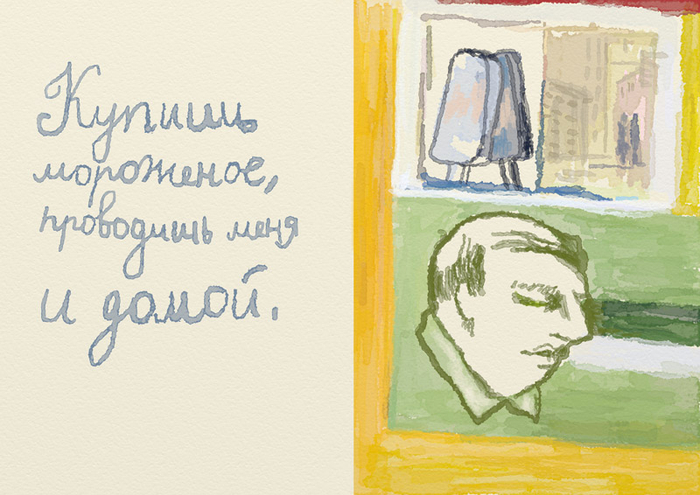 Купишь
мороженое,
проводишь меня
и домой.